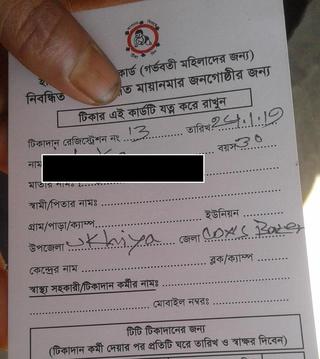 কার্ড (গর্ভবতী মহিলাদের জন্য)
নিবন্ধিত মায়ানমার জনগোষ্ঠীর জন্য
টিকার এই কার্ডটি যত্ন করে রাখুন
টিকাদান রেজিস্ট্রেশন নং 13 তারিখ 24.1.
নাম বয়স 30
মাতার নামঃ
স্বামী/পিতার নামঃ
গ্রাম/পাড়া/ক্যাম্প ইউনিয়ন
উপজেলা ukhiya জেলা Coxs Bazer
কেন্দ্রের নাম ব্লক/ক্যাম্প
স্বাস্থ্য সহকারী/টিকাদান কর্মীর নামঃ
মোবাইল নম্বরঃ
টিটি টিকাদানের জন্য
(টিকাদান কর্মী দেয়ার পর প্রতিটি ঘরে তারিখ ও স্বাক্ষর দিবেন)